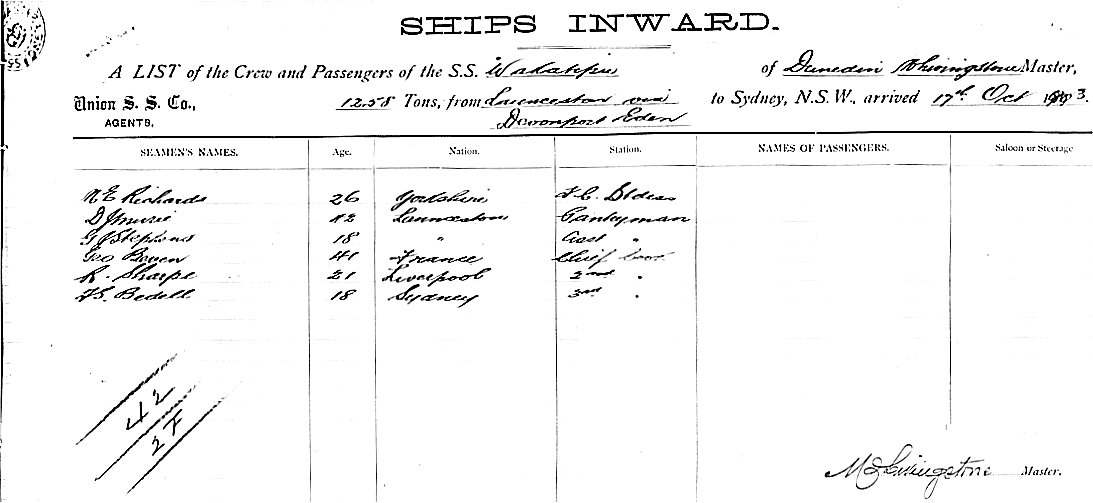 SHIPS INWARD.
A LIST of the Crew and Passengers of the S.S. Wakatipu of Dunedin Livingstone Master,
Union S. S. Co., 1258 Tons, from Launceston via to Sydney, N.S.W., arrived 17th Oct 3.
AGENTS. Devonport Eden
SEAMEN'S NAMES. Age. Nation. Station. NAMES OF PASSENGERS. Saloon or Steerage
Richards 26 Yorkshire F. C. Stdess
D 42 Launceston Pantryman
G Stephens 18 " Asst "
Geo Beven 41 France Chief Cook
R. Sharpe 21 Liverpool 2nd "
Bedell 18 Sydney 3rd "
42
27
Livingstone Master.